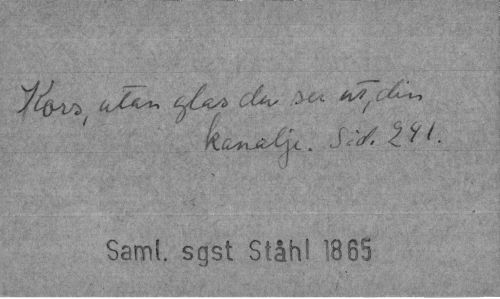 Kors, utan glas du ser ut, din
kanalje. Sid. 291.
Saml. sgst Ståhl 1865